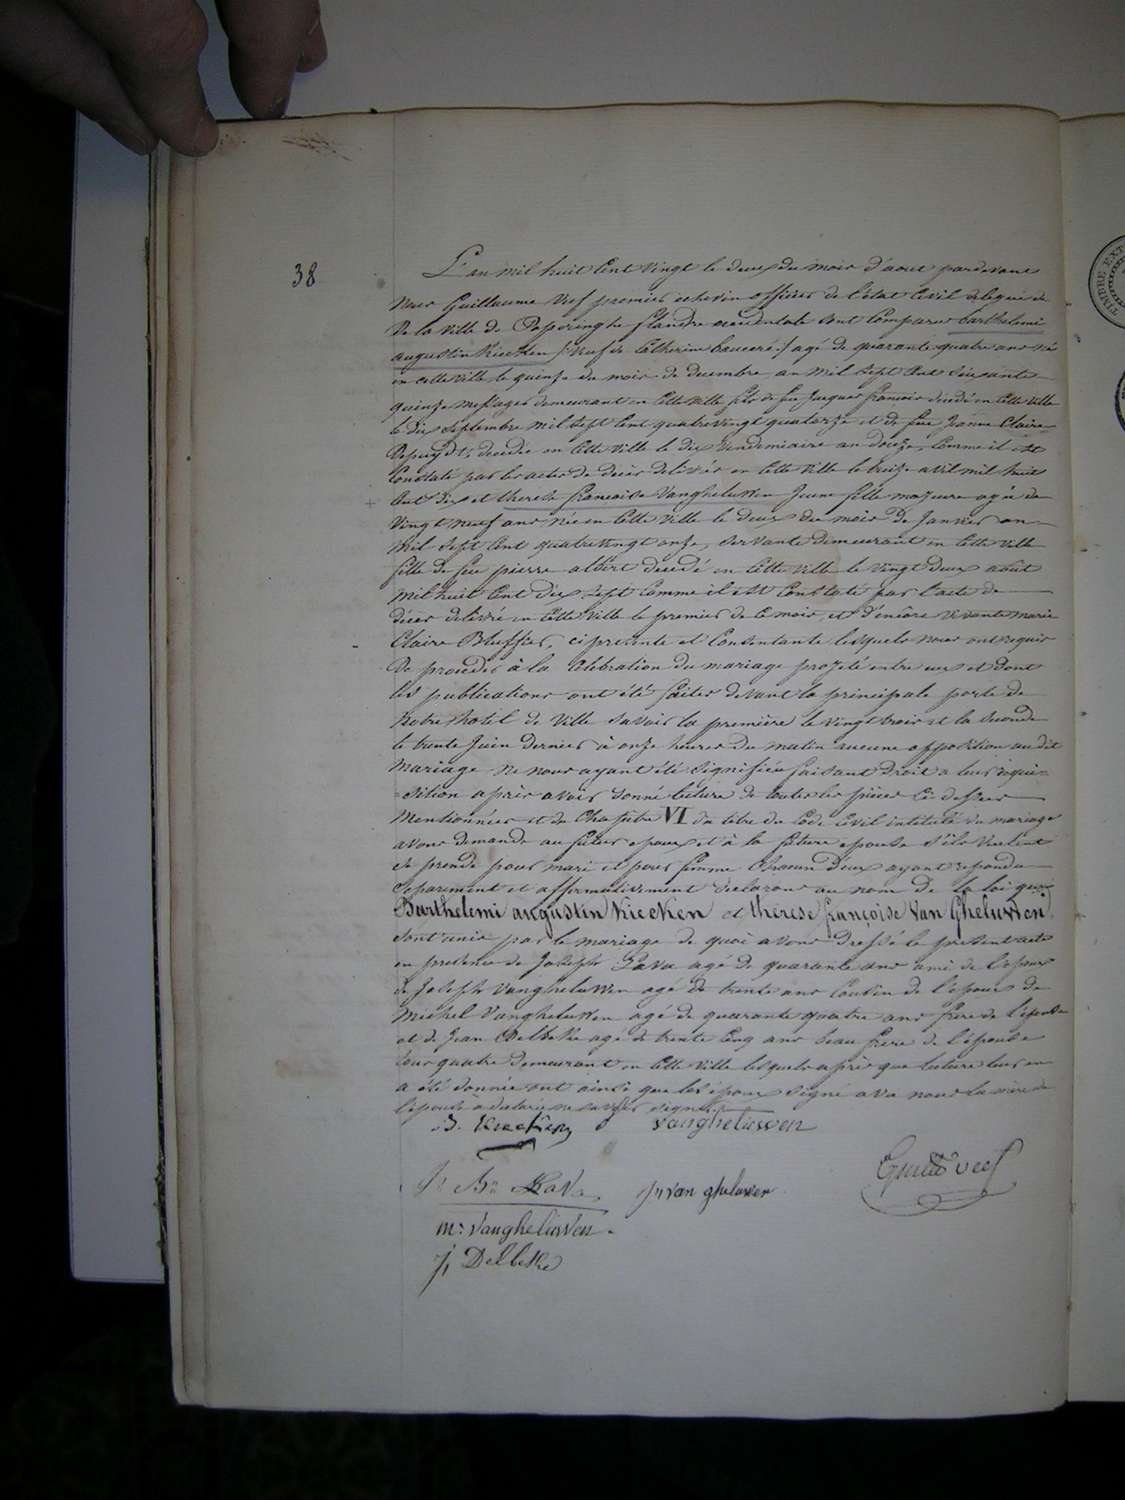 38
L'an mil huit Cent Vingt le deux du mois d'aout pardevant
Nous Guillaume Veef premier echevin officier de l'état Civil délégué
De la Ville de Poperinghe flandre occidentale sont Comparus barthelemi
augustin Kiecken /:Veuf de Catherine :/ agé de quarante quatre ans né
en cette Ville le quinze du mois de decembre an mil sept Cent Soixante
quinze demeurant en Cette Ville fils de feu Jacques francois decédé en Cette Ville
le dix Septembre mil sept Cent quatrevingt quatorze et de feue Jeanne Claire
Depuydt, decedée en Cette Ville le dix Vendemiaire an douze, Comme il est
Constaté par les actes de décès delivrés en Cette Ville le treize avril mil huit
Cent dix et therese francoise Vanghelüwen Jeune fille majeure agée de
Vingt neuf ans née en Cette Ville le deux du mois de Janvier an
Mil Sept Cent quatrevingt onze, Servante demeurant en Cette Ville
fille de feu pierre albert decedé en Cette Ville le Vingt deux août
Mil huit Cent dix sept Comme il est Constaté par l'acte de
décès delivré en Cette Ville le premier de Ce mois, et d'encore Vivante marie
Claire , ci presente et Consentante lesquels nous ont requis
De proceder à la Celebration du mariage projeté entre eux et dont
les publications ont été faites devant la principale porte de
Notre hotel de Ville Savoir la première le Vingt trois et la Seconde
le trente Juin dernier à onze heures du matin aucune opposition au dit
Mariage ne nous ayant été Signifiée faisant Droit a leur requi=
=sition après avoir donné lecture de toutes les pièces Ci dessus
Mentionnées et du Chapitre VI du titre du Code Civil intitulé du mariage
avons demandé au futur epoux et à la future epouse s'ils Veulent
Se prendre pour mari et pour femme Chacun d'eux ayant repondu
Separement et affirmativement declarons au nom de la loi que
Barthelemi augustin Kiecken et therese françoise Van Gheluwen
Sont unis par le mariage de quoi avons dressé le present acte
en presence de Joseph Lava agé de quarante ans ami de l'epoux
de Joseph Vangheluwen agé de trente ans Cousin de l'epouse de
Michel Vangheluwen agé de quarante quatre ans frere de l'épouse
et de Jean Delbeke agé de trente Cinq ans beau frere de l'épouse
tous quatre demeurant en Cette Ville lesquels après que lecture leur en
a été donnée ont ainsi que les époux signé avec nous la mère de
l'épouse a declaré ne savoir signer
B. Kiecken Vangheluwen
Lava J, van gheluwen Guill Veef
m: Vangheluwen
J, Delbeke
TIMBRE EXT